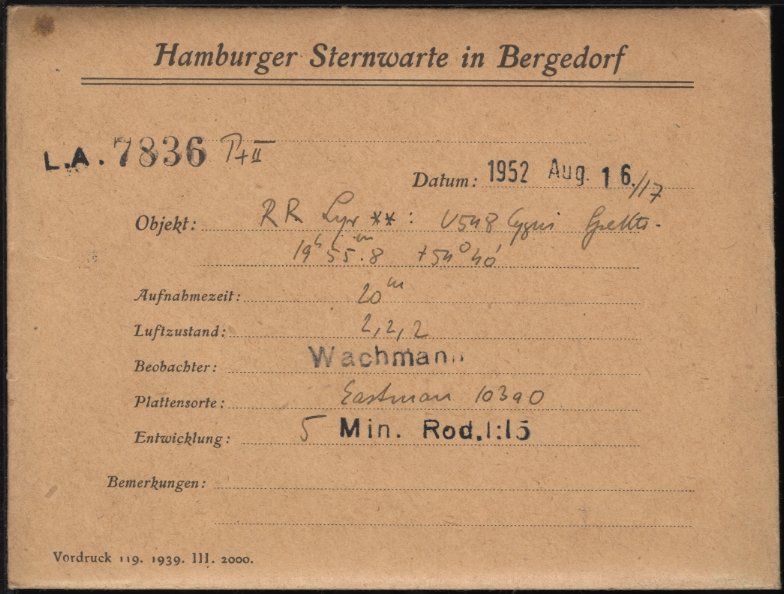 Hamburger Sternwarte in Bergedorf
L.A. 7836 P+II
Datum: 1952 Aug. 16./17
Objekt: RR Lyr **: V548 Cygni Spektr.
19ʰ 55ᵐ.8 +54° 40'
Aufnahmezeit: 20ᵐ
Luftzustand: 2, 2, 2
Beobachter: Wachmann
Plattensorte: Eastman 103a0
Entwicklung: 5 Min. Rod. 1:15
Bemerkungen:
Vordruck 119. 1939. III. 2000.